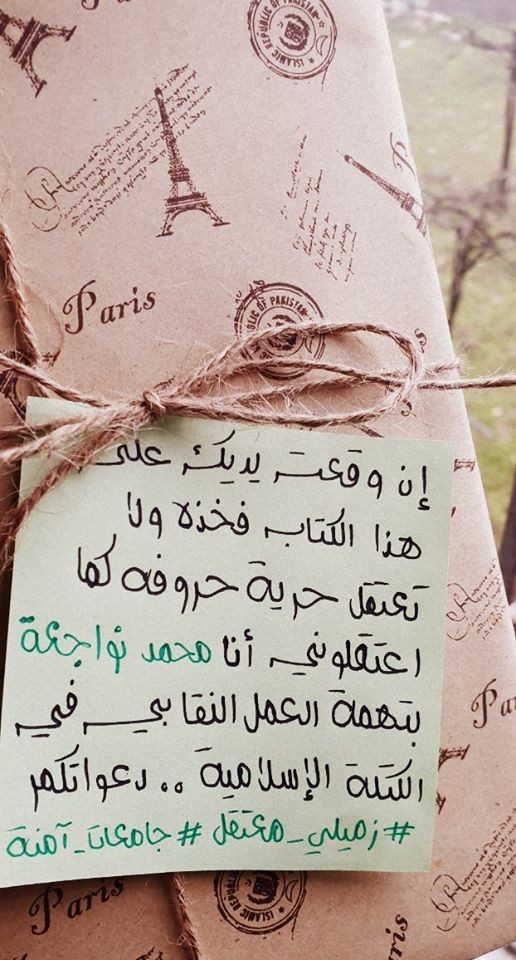 ISLAMIC REPUBLIC OF PAKISTAN
Paris
REPUBLIC OF PAKISTAN
إن وقعت يديك على
هذا الكتاب فخذه ولا
تعتقل حرية حروفه كما
اعتقلوني أنا محمد نواجعة
بتهمة العمل النقابي في
الكتلة الإسلامية .. دعواتكم
#زميلي_معتقل #جامعات_آمنة
Paris
Paris